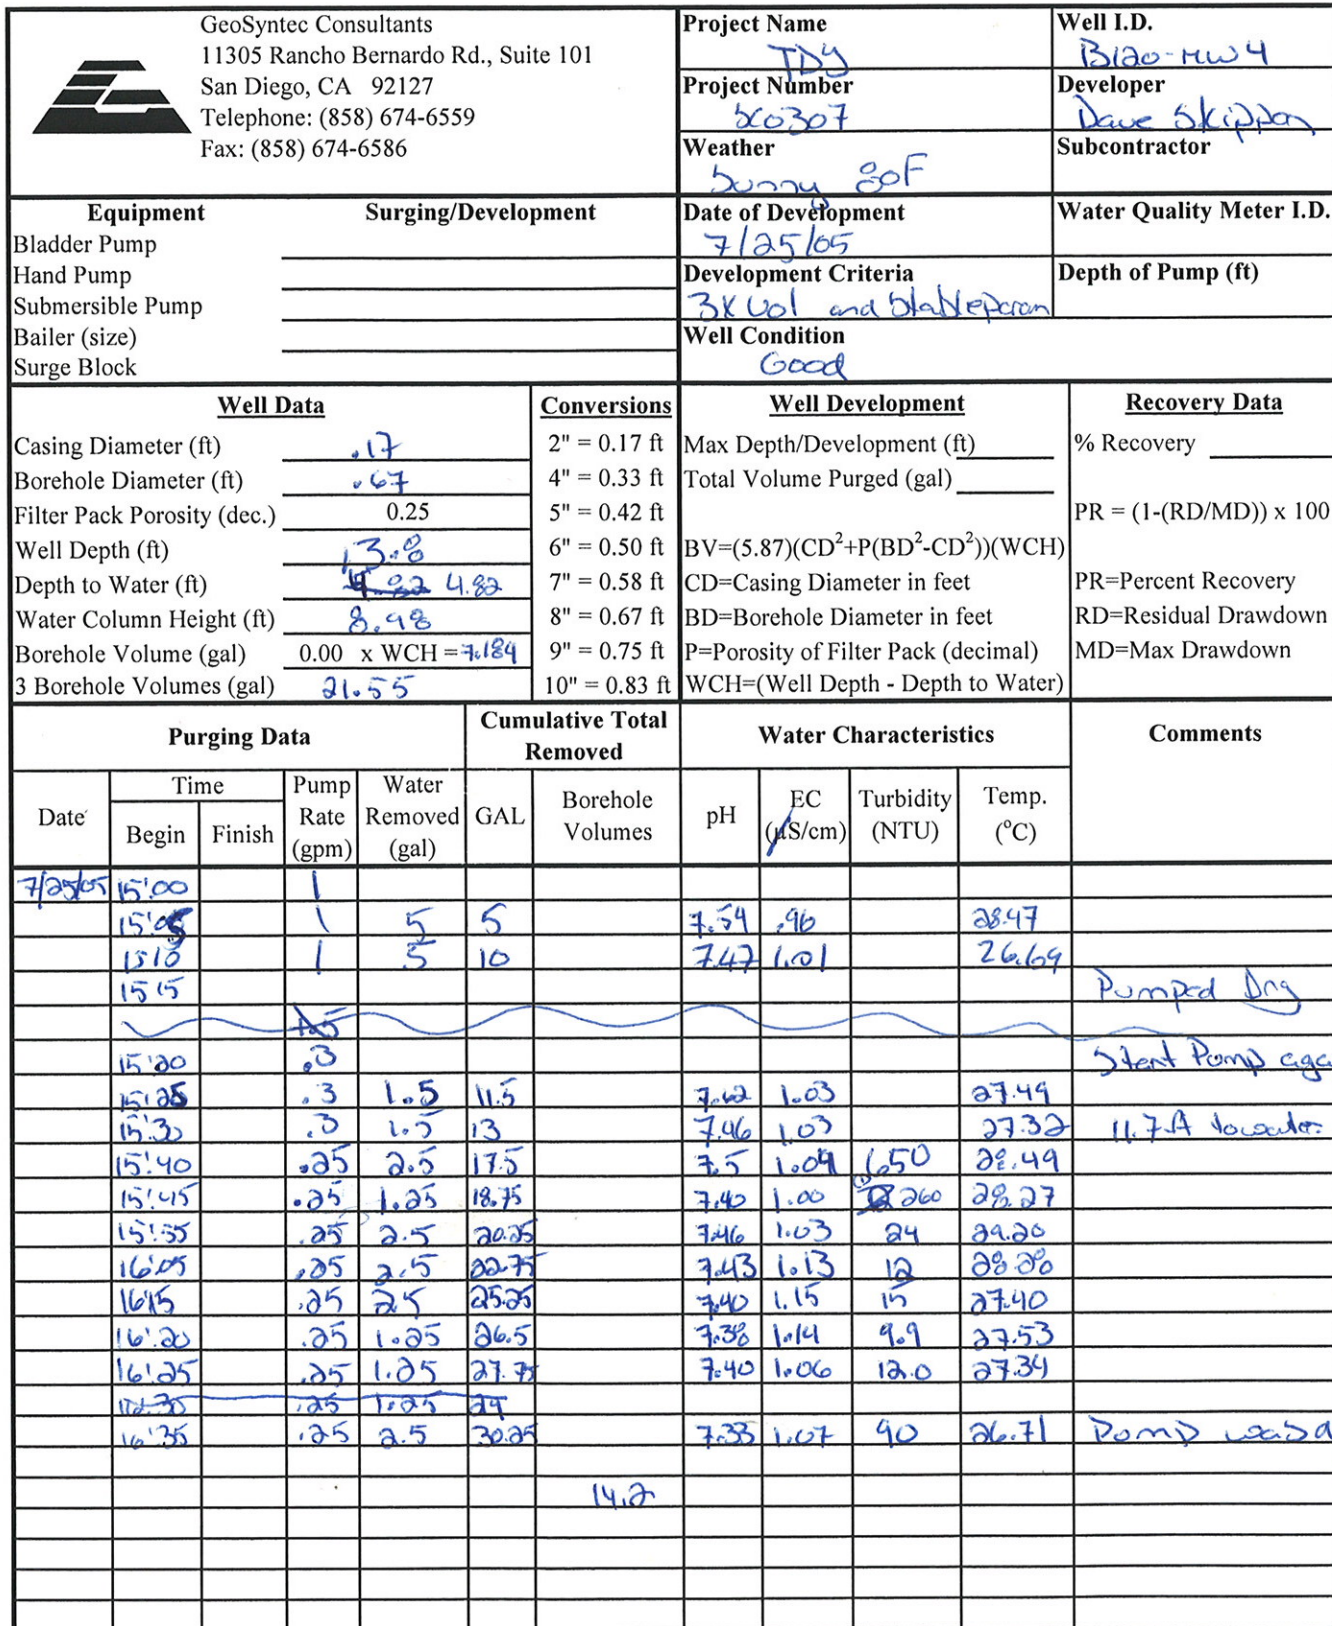 GeoSyntec Consultants
11305 Rancho Bernardo Rd., Suite 101
San Diego, CA 92127
Telephone: (858) 674-6559
Fax: (858) 674-6586
Project Name
TDY
Well I.D.
B120-MW4
Project Number
SC0307
Developer
Dave Skippon
Weather
Sunny 80F
Subcontractor
Equipment Surging/Development
Bladder Pump
Hand Pump
Submersible Pump
Bailer (size)
Surge Block
Date of Development
7/25/05
Water Quality Meter I.D.
Development Criteria
3x Vol and Stable param
Depth of Pump (ft)
Well Condition
Good
Well Data
Casing Diameter (ft) .17
Borehole Diameter (ft) .67
Filter Pack Porosity (dec.) 0.25
Well Depth (ft) 13.8
Depth to Water (ft) 4.82 4.82
Water Column Height (ft) 8.98
Borehole Volume (gal) 0.00 x WCH = 7.184
3 Borehole Volumes (gal) 21.55
Conversions
2" = 0.17 ft
4" = 0.33 ft
5" = 0.42 ft
6" = 0.50 ft
7" = 0.58 ft
8" = 0.67 ft
9" = 0.75 ft
10" = 0.83 ft
Well Development
Max Depth/Development (ft)
Total Volume Purged (gal)
BV=(5.87)(CD²+P(BD²-CD²))(WCH)
CD=Casing Diameter in feet
BD=Borehole Diameter in feet
P=Porosity of Filter Pack (decimal)
WCH=(Well Depth - Depth to Water)
Recovery Data
% Recovery
PR = (1-(RD/MD)) x 100
PR=Percent Recovery
RD=Residual Drawdown
MD=Max Drawdown
Purging Data Cumulative Total Removed Water Characteristics Comments
Date Time Begin Finish Pump Rate (gpm) Water Removed (gal) GAL Borehole Volumes pH EC (µS/cm) Turbidity (NTU) Temp. (°C)
7/25/05 15:00 1
15:05 1 5 5 7.54 .96 28.47
1510 1 5 10 7.47 1.01 26.69
1515 Pumped Dry
1.5
15:20 .3 Start Pump aga
15:25 .3 1.5 11.5 7.62 1.03 27.49
15:30 .3 1.5 13 7.46 1.03 27.32 11.7 ft to water
15:40 .25 2.5 17.5 7.5 1.04 650 28.49
15:45 .25 1.25 18.75 7.40 1.00 260 28.27
15:55 .25 2.5 20.25 7.46 1.03 24 29.20
16:05 .25 2.5 22.75 7.43 1.13 12 28.28
1615 .25 2.5 25.25 7.40 1.15 15 27.40
16:20 .25 1.25 26.5 7.38 1.14 9.9 27.53
16:25 .25 1.25 27.75 7.40 1.06 12.0 27.34
16:30 .25 1.25 29
16:35 .25 2.5 30.25 7.33 1.07 90 26.71 Pump
14.2